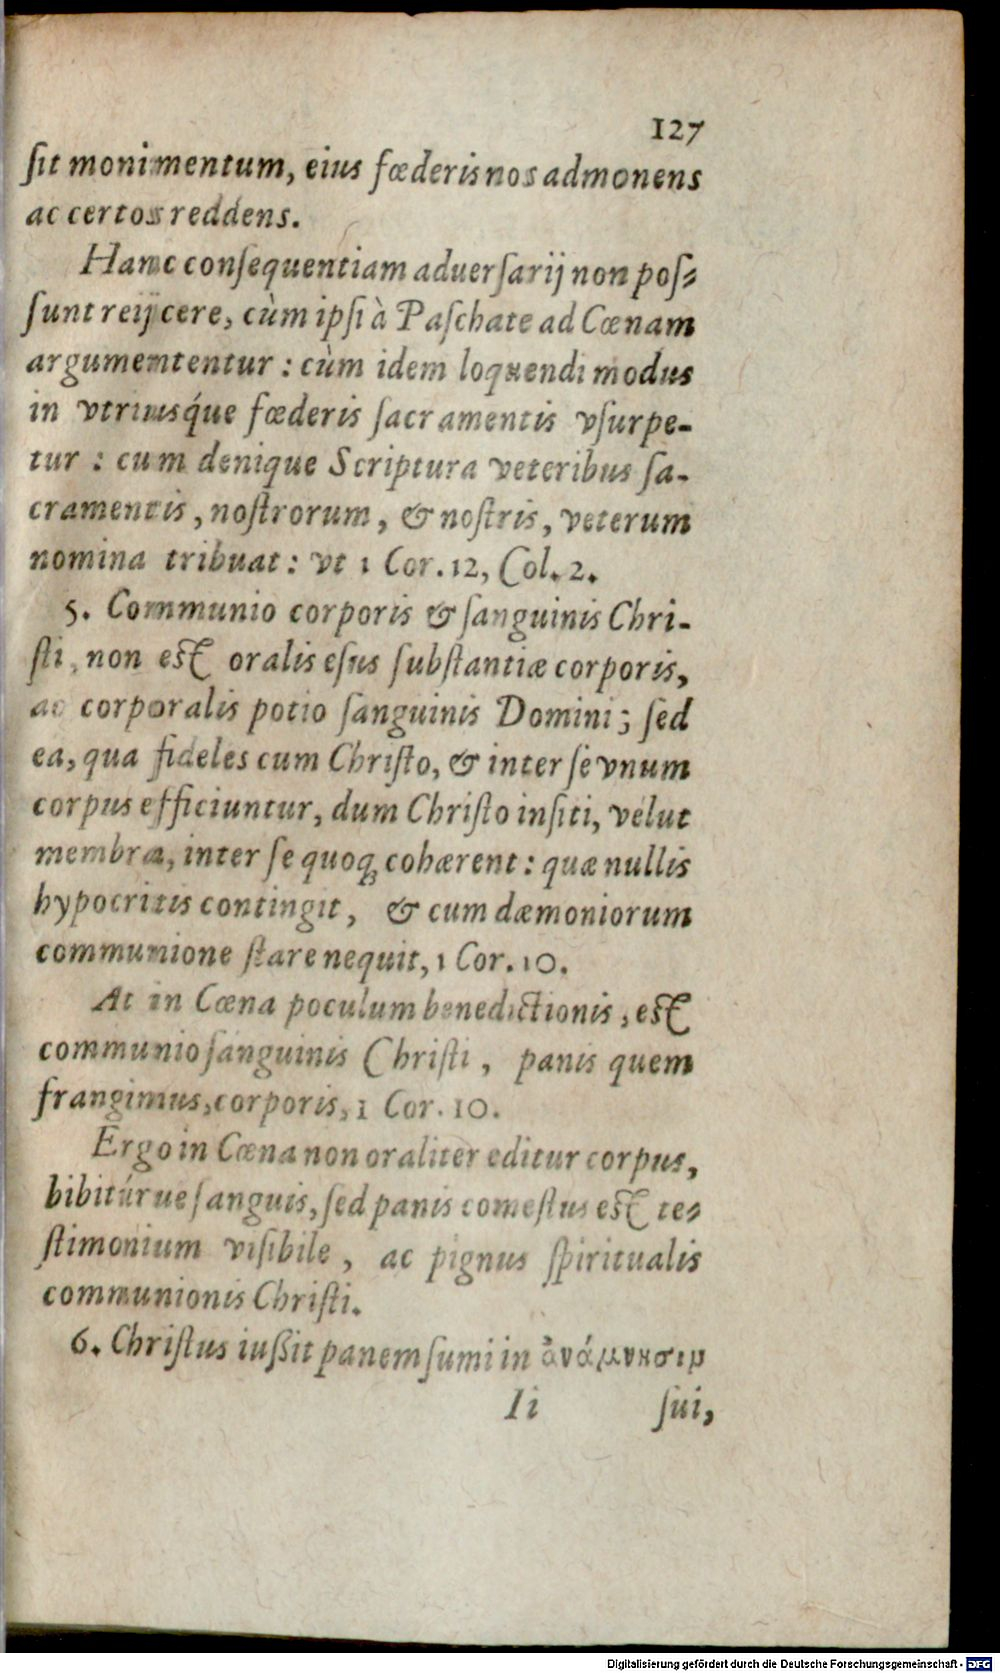 127
ſit monimentum, eius fœderis nos admonens
ac certos reddens.
Hanc conſequentiam aduerſarij non poſ-
ſunt reijcere, cùm ipſi à Paſchate ad Cœnam
argumententur : cùm idem loquendi modus
in vtriusq́ue fœderis ſacramentis vſurpe-
tur : cum denique Scriptura veteribus ſa-
cramentis, noſtrorum, & noſtris, veterum
nomina tribuat : vt 1 Cor. 12, Col. 2.
5. Communio corporis & ſanguinis Chri-
ſti, non eſt oralis eſus ſubſtantiæ corporis,
ac corporalis potio ſanguinis Domini; ſed
ea, qua fideles cum Chriſto, & inter ſe vnum
corpus efficiuntur, dum Chriſto inſiti, velut
membra, inter ſe quoq; cohærent : quæ nullis
hypocritis contingit, & cum dæmoniorum
communione ſtare nequit, 1 Cor. 10.
At in Cœna poculum benedictionis, eſt
communio ſanguinis Chriſti, panis quem
frangimus, corporis, 1 Cor. 10.
Ergo in Cœna non oraliter editur corpus,
bibitúrue ſanguis, ſed panis comeſtus eſt te-
ſtimonium viſibile, ac pignus ſpiritualis
communionis Chriſti.
6. Chriſtus iußit panem ſumi in ἀνάμνησιμ
Ii ſui,
Digitalisierung gefördert durch die Deutsche Forschungsgemeinschaft - DFG